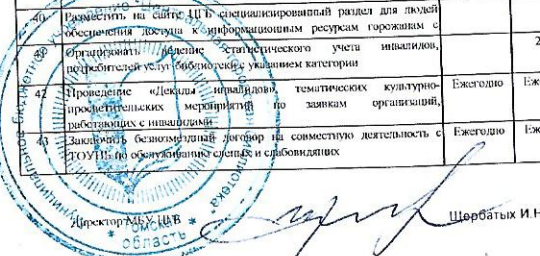 40 Разместить на сайте ЦГБ специализированный раздел для людей
обеспечения доступа к информационным ресурсам горожанам с
Организовать ведение статистического учета инвалидов, 2
потребителей услуг библиотеки с указанием категории
42 Проведение «Декады инвалидов», тематических культурно- Ежегодно Еже
просветительских мероприятий по заявкам организаций,
работающих с инвалидами
43 Заключить безвозмездный договор на совместную деятельность с Ежегодно Еже
ТОУНБ по обслуживанию слепых и слабовидящих
Директор МБУ ЦГБ Щербатых И.Н
Томская
область